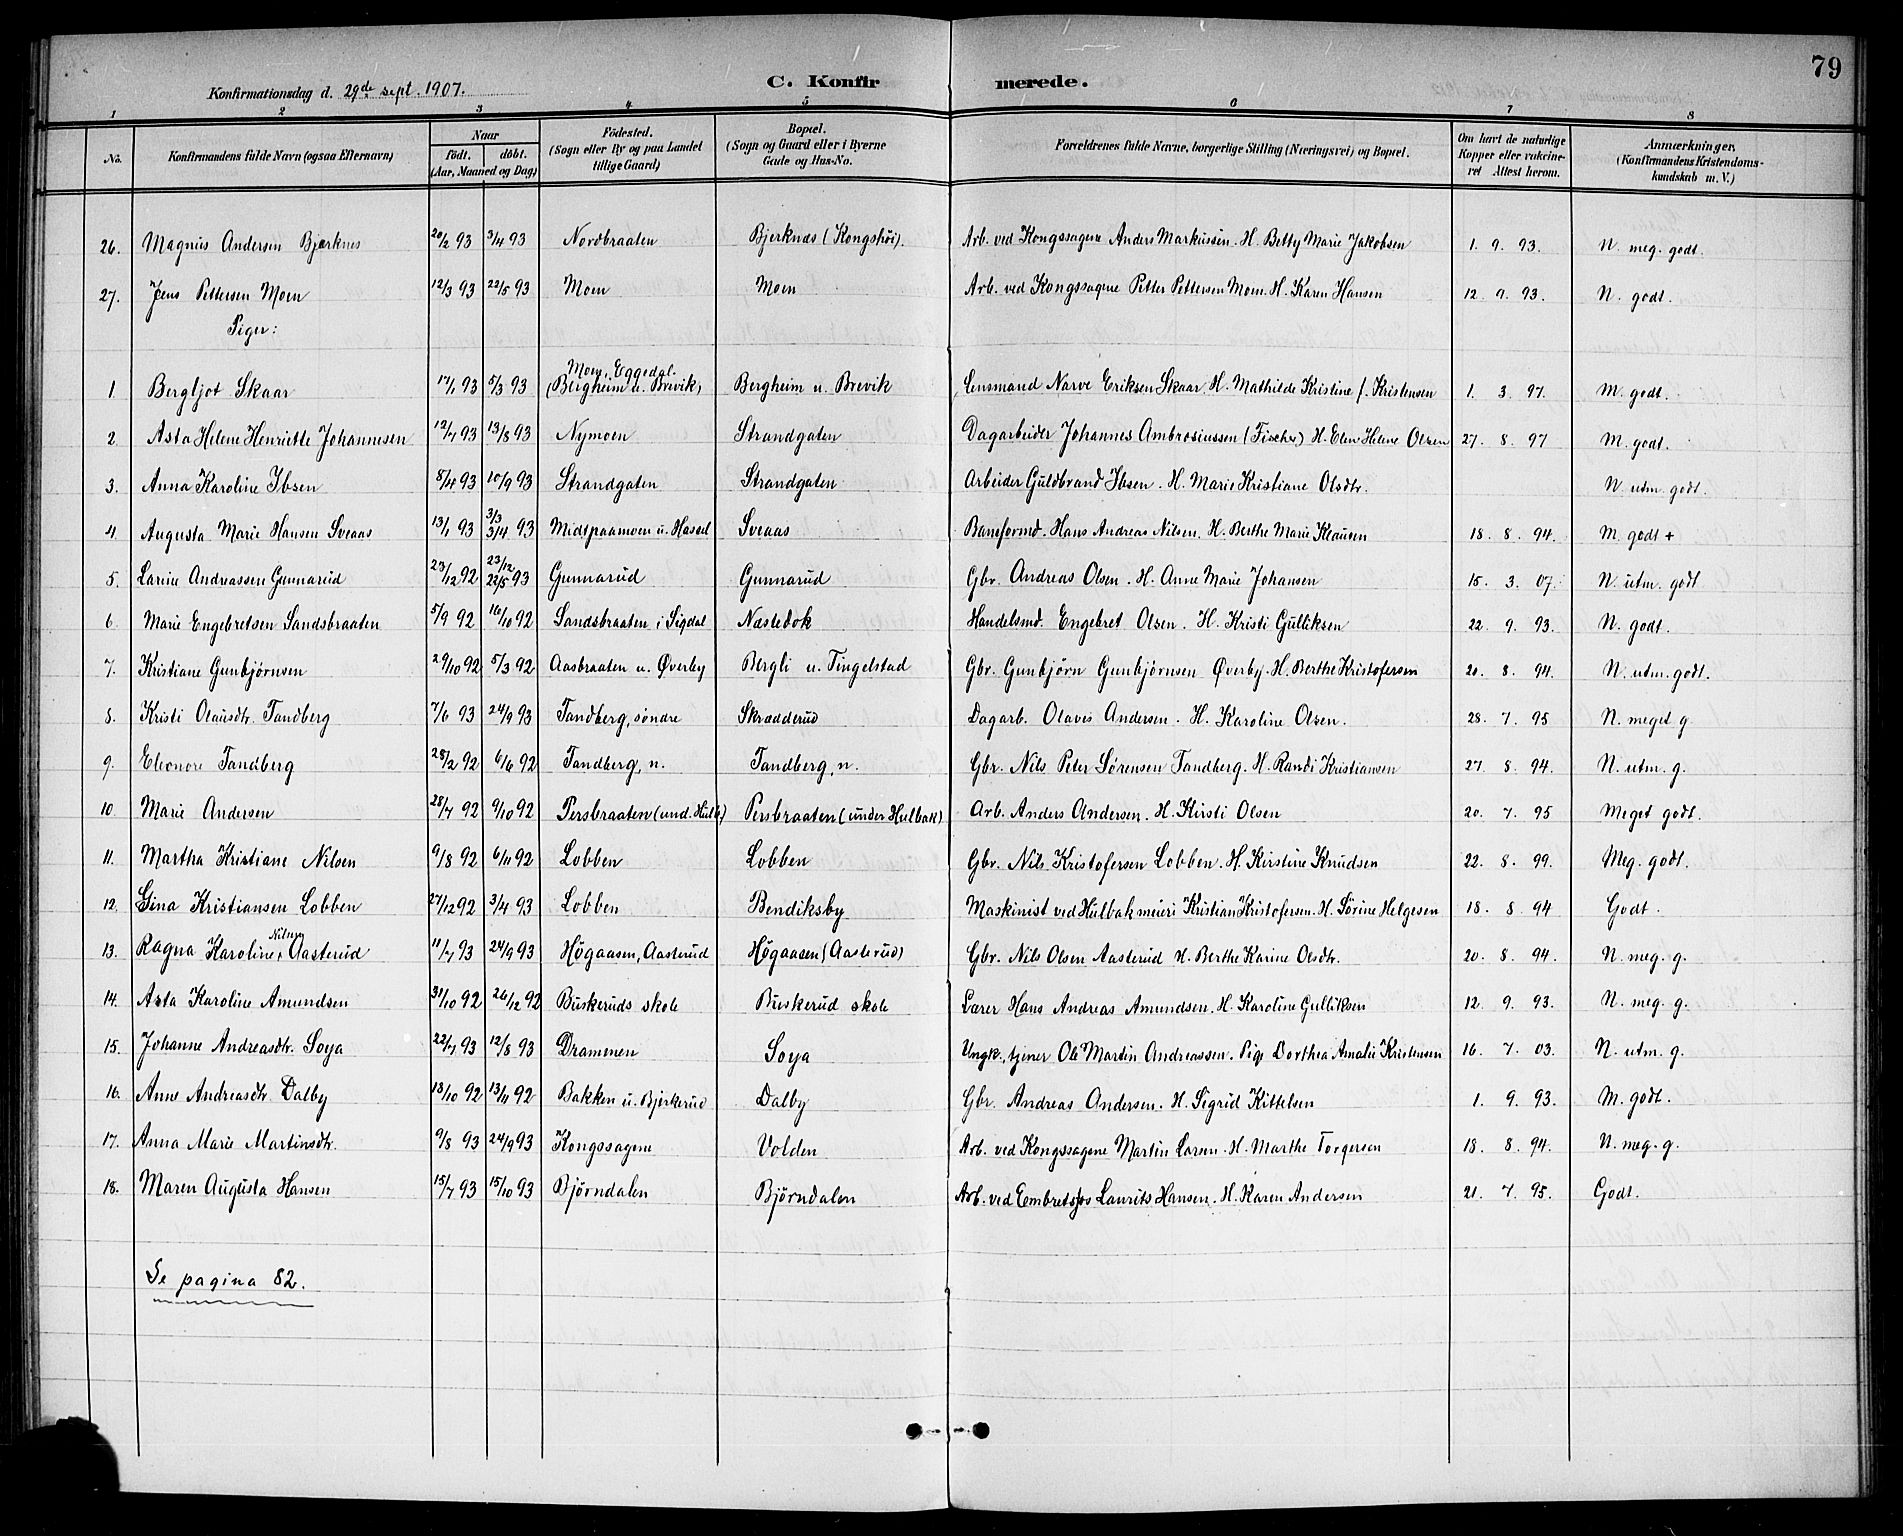 79
Konfirmationsdag d. 29de sept. 1907. C. Konfirmerede.
1 2 3 4 5 6 7 8
No. Konfirmandens fulde Navn (ogsaa Efternavn) Naar født. døbt. (Aar, Maaned og Dag) Fødested. (Sogn eller By og paa Landet tillige Gaard) Bopæl. (Sogn og Gaard eller i Byerne Gade og Hus-No. Forældrenes fulde Navne, borgerlige Stilling (Næringsvei) og Bopæl. Om havt de naturlige Kopper eller vakcineret Attest herom. Anmærkninger. (Konfirmandens Kristendomskundskab m. V.)
26. Magnus Andersen Bjerknes 20/2 93 3/4 93 Nordbraaten Bjerknæs (Kongshøi). Arb. ved Kongssagene Anders Markussen. H. Betty Marie Jakobsen 1. 9. 93. N. meg. godt.
27. Jens Pettersen Moen 12/3 93 22/5 93 Moen Moen Arb. ved Kongssagene Petter Pettersen Moen. H. Karen Hansen 12. 9. 93. N. godt.
Piger:
1. Bergljot Skaar 17/1 93 5/3 93 Moen, Eggedal. (Bergheim u. Brevik) Bergheim u. Brevik Lensmand Narve Eriksen Skaar. H. Mathilde Kristine f. Kristensen 1. 3. 97. M. godt.
2. Asta Helene Henriette Johannesen 12/7 93 13/8 93 Nymoen Strandgaten Dagarbeider Johannes Ambrosiussen (Fischer) H. Elen Helene Olsen 27. 8. 97 M. godt.
3. Anna Karoline Ibsen 8/4 93 10/9 93 Strandgaten Strandgaten Arbeider Guldbrand Ibsen. H. Marie Kristiane Olsdtr. N. utm. godt.
4. Augusta Marie Hansen Sveaas 13/1 93 3/3 3/4 93 Midtpaamoen u. Hassel Sveaas Baneformd. Hans Andreas Nilsen. H. Berthe Marie Klausen 18. 8. 94. M. godt +
5. Larine Andreassen Gunnarud 23/12 92 23/12 22/5 93 Gunnarud Gunnarud Gbr. Andreas Olsen. H. Anne Marie Johansen 15. 3. 07. N. utm. godt
6. Marie Engebretsen Sandsbraaten 5/9 92 16/10 92 Sandsbraaten i Sigdal Næstedok Handelsmd. Engebret Olsen. H. Kristi Gulliksen 22. 9. 93. N. godt.
7. Kristiane Gunbjørnsen 29/10 92 5/3 92 Aasbraaten u. Øverby Bergli u. Tingelstad Gbr. Gunbjørn Gunbjørnsen Øverby. H. Berthe Kristofersen 20. 8. 94. N. utm. godt.
8. Kristi Olausdtr. Tandberg 7/6 93 24/9 93 Tandberg, søndre Skrædderud Dagarb. Olavis Andersen. H. Karoline Olsen. 28. 7. 95 N. meget g.
9. Eleonore Tandberg 28/2 92 6/6 92 Tandberg, n. Tandberg, n. Gbr. Nils Peter Sørensen Tandberg. H. Randi Kristiansen 27. 8. 94. N. utm. g.
10. Marie Andersen 28/7 92 9/10 92 Persbraaten (und. Hulb.) Persbraaten (under Hulbak) Arb. Anders Andersen. H. Kristi Olsen 20. 7. 95 Meget godt.
11. Martha Kristiane Nilsen 9/8 92 6/11 92 Lobben Lobben Gbr. Nils Kristofersen Lobben. H. Kirstine Knudsen 22. 8. 99. Meg. godt.
12. Gina Kristiansen Lobben 27/12 92 3/4 93 Lobben Bendiksby Maskinist ved Hulbak meieri Kristian Kristofersen. H. Sörine Helgesen 18. 8. 94 Godt.
13. Ragna Karoline Nilsen Aasterud 11/7 93 24/9 93 Högaasen, Aasterud Högaasen (Aasterud) Gbr. Nils Olsen Aasterud H. Berthe Karine Olsdtr. 20. 8. 94. N. meg. g.
14. Asta Karoline Amundsen 31/10 92 26/12 92 Buskeruds skole Buskerud skole Lærer Hans Andreas Amundsen. H. Karoline Gulliksen 12. 9. 93. N. meg. g.
15. Johanne Andreasdtr. Soya 22/7 93 12/8 93 Drammen Soya Ungk., tjener Ole Martin Andreassen. Pige Dorthea Amalie Kristensen 16. 7. 03. N. utm. g.
16. Anne Andreasdtr Dalby 18/10 92 13/11 92 Bakken u. Bjerkerud Dalby Gbr. Andreas Andersen. H. Sigrid Kittelsen 1. 9. 93. M. godt.
17. Anna Marie Martinsdtr. 9/8 93 24/9 93 Kongssagene Volden Arb. ved Kongssagene Martin Larsen. H. Marthe Torgersen 18. 8. 94. N. meg. g.
18. Maren Augusta Hansen 15/7 93 15/10 93 Björndalen Björndalen Arb. ved Embretsfos Laurits Hansen. H. Karen Andersen 21. 7. 95. Godt.
Se pagina 82.